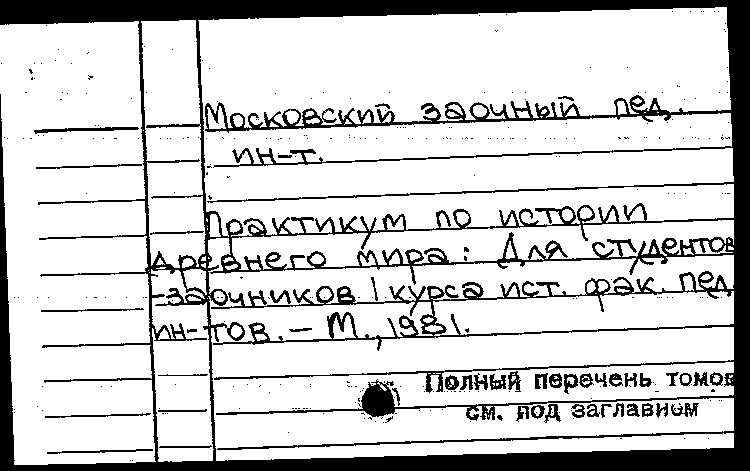 Московский заочный пед.
ин-т.
Практикум по истории
древнего мира: Для студентов
-заочников I курса ист. фак. пед.
ин-тов. – М., 1981.
Полный перечень томов
см. под заглавием